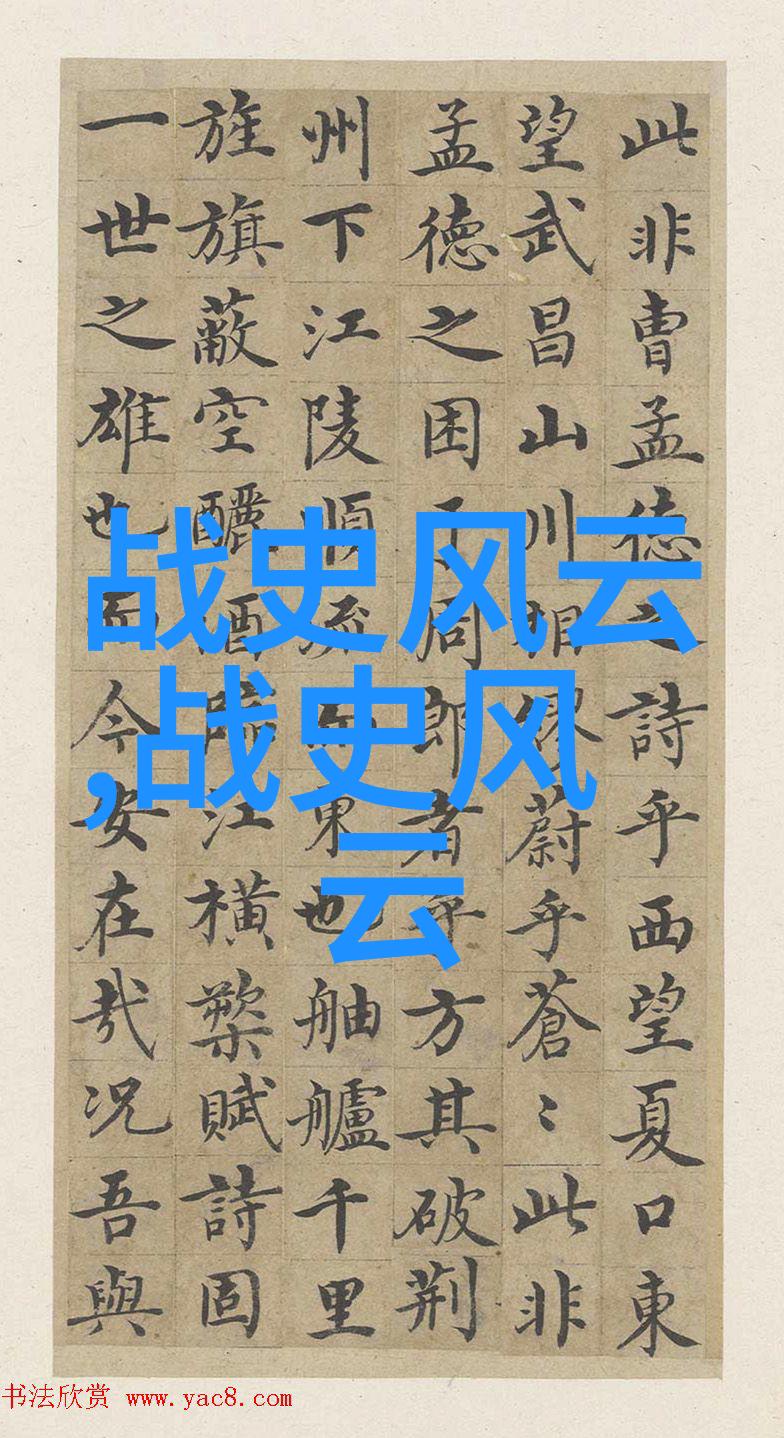 此非曹孟徳之詩乎西望夏口東
望武昌山川相繆蔚乎蒼〻此非
孟徳之困于周郎者乎方其破荆
州下江陵順流而東也舳艫千里
旌旗蔽空釃酒臨江横槊賦詩固
一世之雄也而今安在哉况吾與
战史风云
,战史风
云
书法欣赏 www.yac8.com